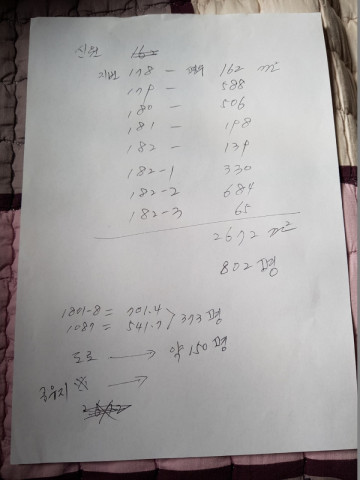 신원
지번 178 - 면적 162 m²
179 - 588
180 - 506
181 - 198
182 - 139
182-1 330
182-2 684
182-3 65
2672 m²
802 평
1301-8 = 701.4
1087 = 541.7 > 373 평
도로 → 약 150 평
국유지 ※ →